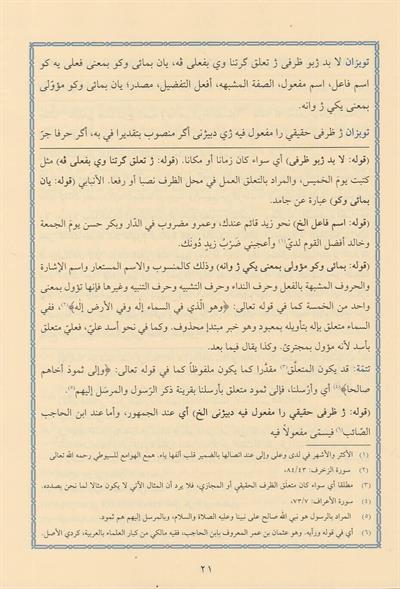 تویزان لا بد ژبو ظرفی ژ تعلق گرتنا وي بفعلی ڤه، یان بمائی وکو بمعنی فعلی یه کو
اسم فاعل، اسم مفعول، الصفة المشبهه، أفعل التفضیل، مصدر؛ یان بمائی وکو مؤوّلی
بمعنی یکي ژ وانه.
تویزان ژ ظرفی حقیقي را مفعول فیه ژي دبیژنی أگر منصوب بتقدیرا في به، أگر حرفا جرّ
(قوله: لا بد ژبو ظرفی) أي سواء كان زمانا أو مكانا. (قوله: ژ تعلق گرتنا وي بفعلی ڤه) مثل
كتبت يومَ الخميس، والمراد بالتعلق العمل في محل الظرف نصبا أو رفعا. الأنبابي (قوله: یان
بمائی وکو) عبارة عن جامد.
(قوله: اسم فاعل الخ) نحو زيد قائم عندك، وعمرو مضروب في الدّار وبكر حسن يومَ الجمعة
وخالد أفضل القوم لديّ(١) وأعجبني ضَرْبُ زيدٍ دُونَك.
(قوله: بمائی وکو مؤولی بمعنی یکي ژ وانه) وذلك كالمنسوب والاسم المستعار واسم الإشارة
والحروف المشبهة بالفعل وحرف النداء وحرف التشبيه وحرف التنبيه وغيرها فإنها تؤول بمعنى
واحد من الخمسة كما في قوله تعالى: ﴿وهو الّذي في السماء إلٰه وفي الأرض إلٰه﴾(٢)، ففي
السماء متعلق بإله بتأويله بمعبود وهو خبر مبتدإ محذوف. وكما في نحو أسد عليّ، فعليّ متعلق
بأسد لأنه مؤول بمجترئ. وكذا يقال فيما بعد.
تتمّة: قد يكون المتعلَّق(٣) مقدَّرا كما يكون ملفوظًا كما في قوله تعالى: ﴿وإلى ثمودَ أخاهم
صالحا﴾(٤) أي وأرْسَلنا، فإلى ثمود متعلق بأرسلنا بقرينة ذكر الرّسول والمرسَل إليهم(٥).
(قوله: ژ ظرفی حقیقي را مفعول فیه دبیژنی الخ) أي عند الجمهور، وأما عند ابن الحاجب
الصّائب(٦) فيسمّى مفعولاً فيه
(١) الأكثر والأشهر في لدى وعلى وإلى عند اتصالها بالضمير قلب ألفها ياء. همع الهوامع للسيوطي رحمه الله تعالى
(٢) سورة الزخرف: ٨٤/٤٣
(٣) مطلقا أي سواء كان متعلق الظرف الحقيقي أو المجازي، فلا يرد أن المثال الآتي لا يكون مثالا لما نحن بصدده.
(٤) سورة الأعراف: ٧٣/٧
(٥) المراد بالرسول هو نبي الله صالح على نبينا وعليه الصلاة والسلام، وبالمرسل إليهم هم ثمود.
(٦) أي في قوله ورأيه. وهو عثمان بن عمر المعروف بابن الحاجب، فقيه مالكي من كبار العلماء بالعربية، كردي الأصل.
٢١